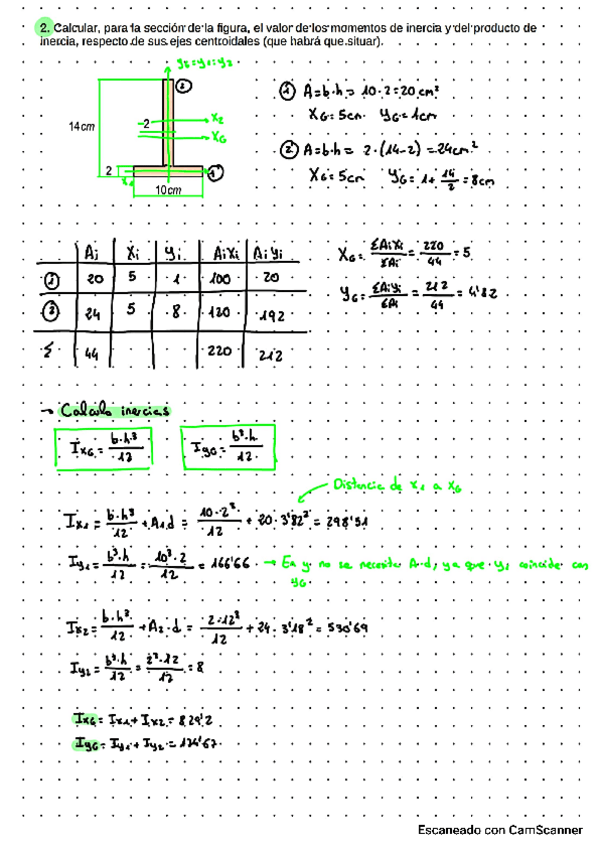 2. Calcular, para la sección de la figura, el valor de los momentos de inercia y del producto de
inercia, respecto de sus ejes centroidales (que habrá que situar).
yG=y1=y2
②
14cm
2
x2
xG
2
x1
①
10cm
① A=b·h= 10·2=20cm²
XG=5cm yG=1cm
② A=b·h= 2·(14-2)=24cm²
XG=5cm yG=1+14/2=8cm
Ai Xi yi AiXi Aiyi
① 20 5 1 100 20
② 24 5 8 120 192
Σ 44 220 212
XG= ΣAiXi/ΣAi = 220/44 = 5
yG= ΣAiyi/ΣAi = 212/44 = 4'82
→ Calculo inercias
IXG= b·h³/12
IyG= b³·h/12
Distancia de x1 a xG
IX1= b·h³/12 + A1·d = 10·2³/12 + 20·3'82² = 298'51
Iy1= b³·h/12 = 10³·2/12 = 166'66 → En y no se necesita A·d, ya que y1 coincide con
yG
IX2= b·h³/12 + A2·d = 2·12³/12 + 24·3'18² = 530'69
Iy2= b³·h/12 = 2³·12/12 = 8
IXG= IX1+IX2= 829'2
IyG= Iy1+Iy2= 174'67
Escaneado con CamScanner